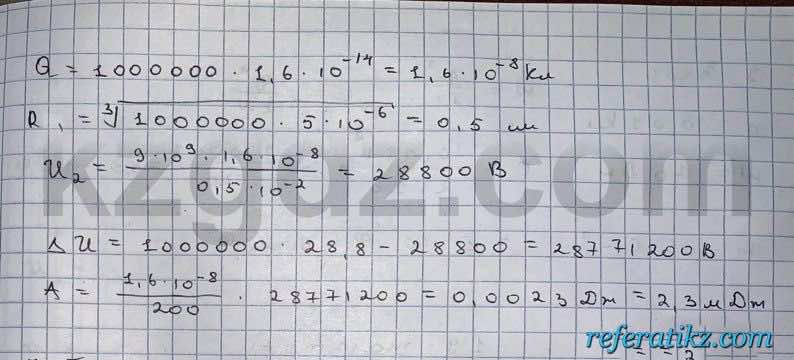 Q = 1000000 · 1,6 · 10⁻¹⁴ = 1,6 · 10⁻⁸ Кл
R₁ = ∛(1000000 · 5 · 10⁻⁶) = 0,5 мм
U₂ = (9 · 10⁹ · 1,6 · 10⁻⁸) / (0,5 · 10⁻²) = 28800 В
kzgdz.com
ΔU = 1000000 · 28,8 - 28800 = 28771200 В
A = (1,6 · 10⁻⁸) / 200 · 28771200 = 0,0023 Дж = 2,3 мДж
referatikz.com